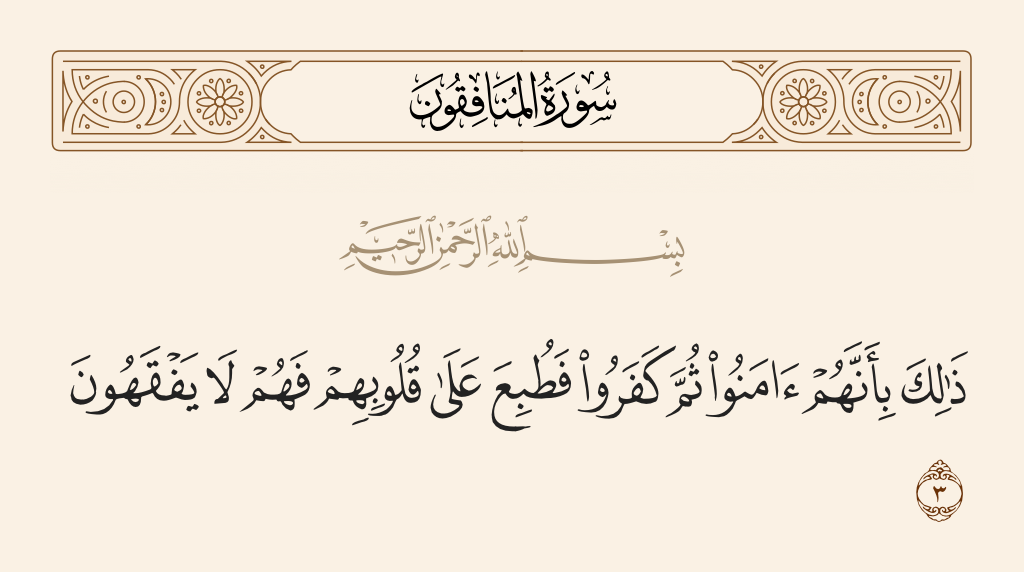 سُورَةُ المُنَافِقُونَ
بِسْمِ ٱللَّهِ ٱلرَّحْمَٰنِ ٱلرَّحِيمِ
ذَٰلِكَ بِأَنَّهُمْ ءَامَنُوا۟ ثُمَّ كَفَرُوا۟ فَطُبِعَ عَلَىٰ قُلُوبِهِمْ فَهُمْ لَا يَفْقَهُونَ
٣